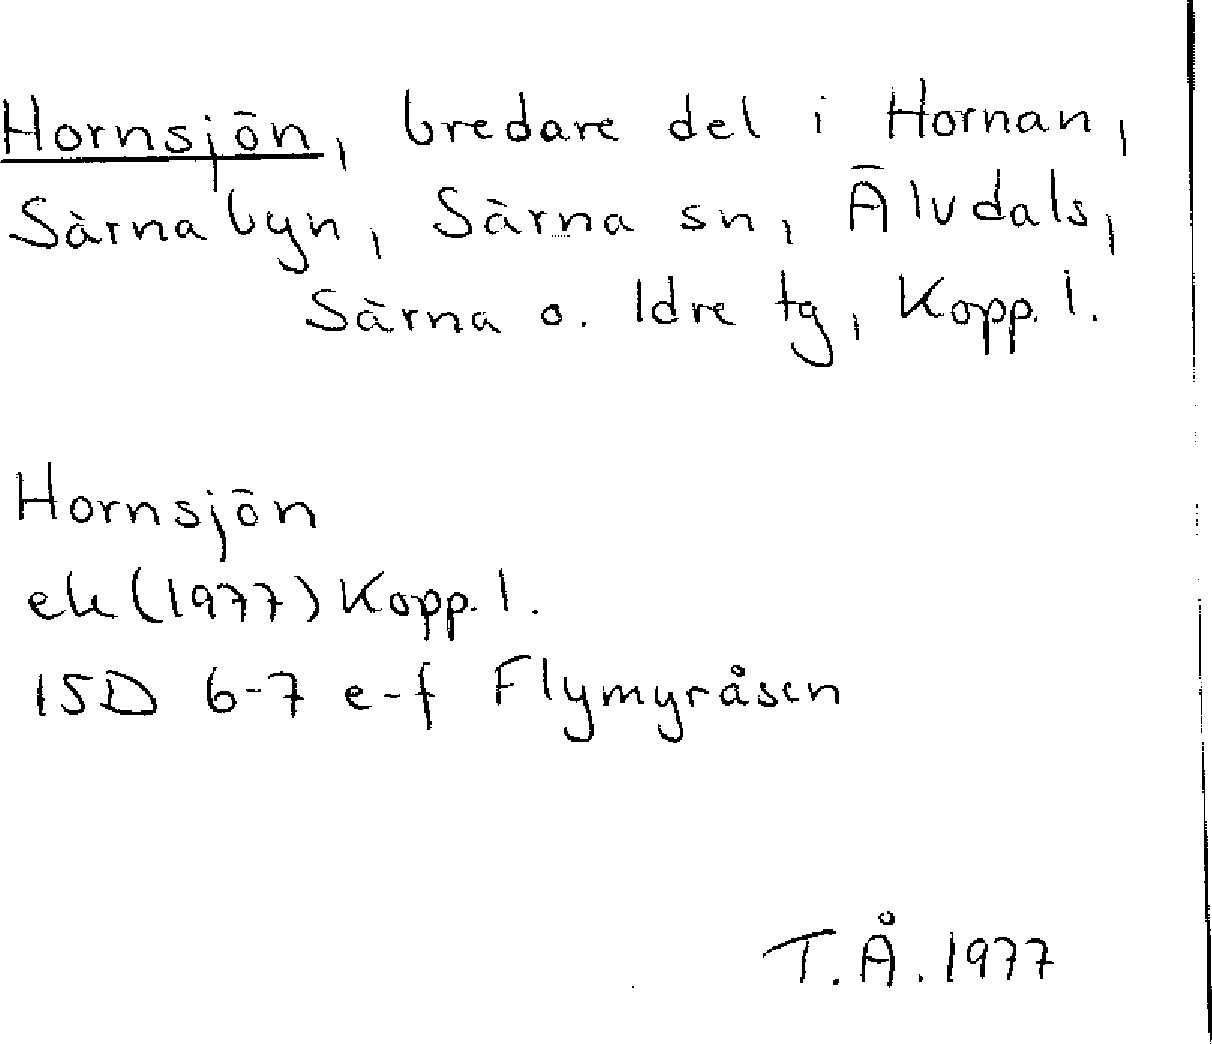 Hornsjön, bredare del i Hornan,
Särnabyn, Särna sn, Älvdals,
Särna o. Idre tg, Kopp. l.
Hornsjön
ek (1977) Kopp. l.
15D 6-7 e-f Flymyråsen
T.Å. 1977